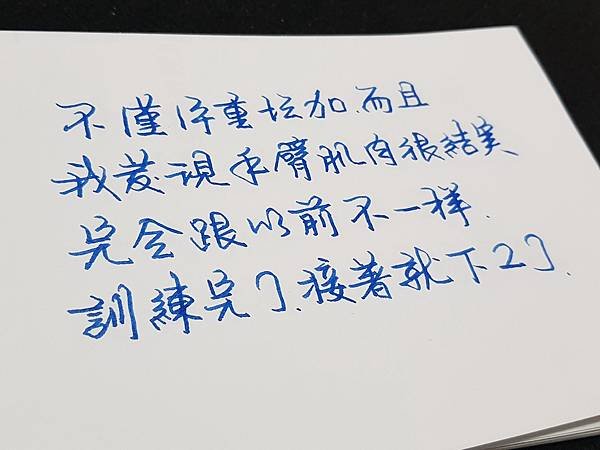 不僅体重增加.而且
我發現手臂肌肉很結実
完全跟以前不一样.
訓練完了.接著就下工了.